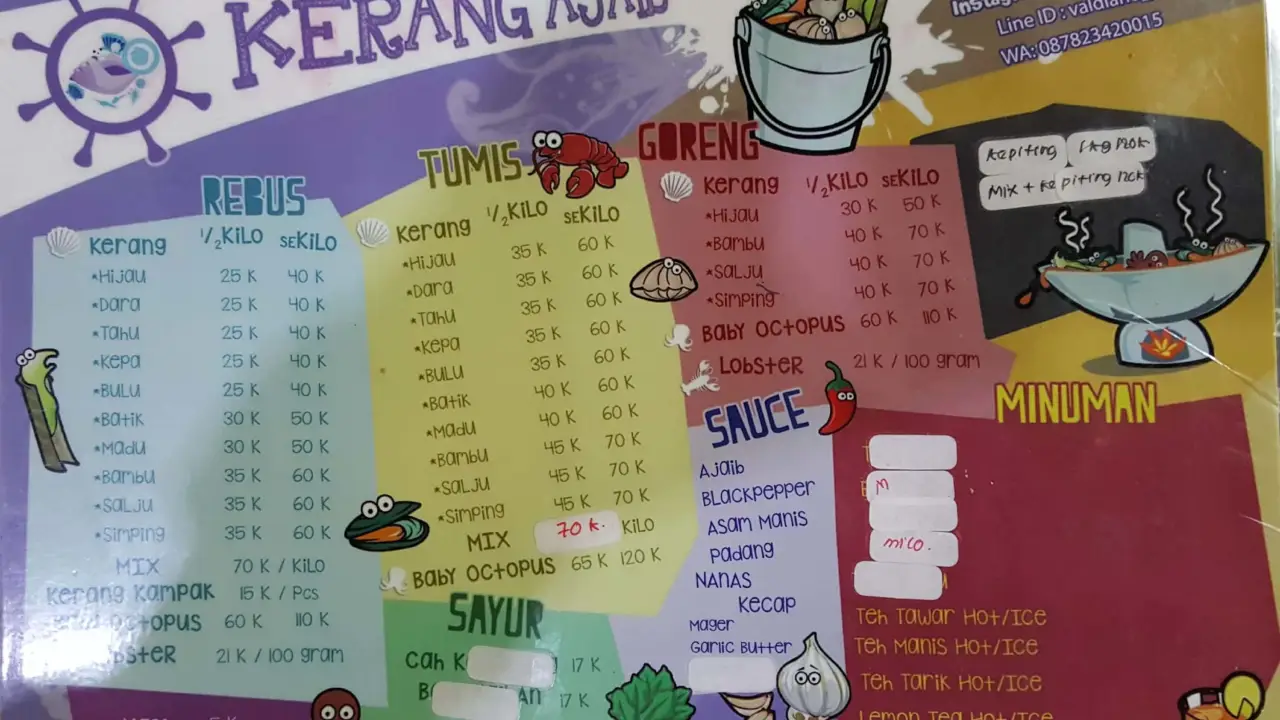 KERANG AJAIB
Line ID : valdian
WA: 087823420015
REBUS
Kerang 1/2KILO seKILO
*Hijau 25 K 40 K
*Dara 25 K 40 K
*Tahu 25 K 40 K
*Kepa 25 K 40 K
*Bulu 25 K 40 K
*Batik 30 K 50 K
*Madu 30 K 50 K
*Bambu 35 K 60 K
*Salju 35 K 60 K
*Simping 35 K 60 K
MIX 70 K / Kilo
Kerang Kampak 15 K / Pcs
Octopus 60 K 110 K
Lobster 21 K / 100 gram
TUMIS
Kerang 1/2KILO seKILO
*Hijau 35 K 60 K
*Dara 35 K 60 K
*Tahu 35 K 60 K
*Kepa 35 K 60 K
*Bulu 35 K 60 K
*Batik 40 K 60 K
*Madu 40 K 60 K
*Bambu 45 K 70 K
*Salju 45 K 70 K
*Simping 45 K 70 K
MIX 70 k. Kilo
Baby Octopus 65 K 120 K
SAYUR
Cah K 17 K
B AN 17 K
GORENG
Kerang 1/2KILO seKILO
*Hijau 30 K 50 K
*Bambu 40 K 70 K
*Salju 40 K 70 K
*Simping 40 K 70 K
Baby Octopus 60 K 110 K
Lobster 21 K / 100 gram
SAUCE
Ajaib
Blackpepper
Asam Manis
Padang
Nanas
Kecap
Mager
Garlic Butter
kepiting 1kg
Mix + kepiting
MINUMAN
M
mico.
Teh Tawar Hot/Ice
Teh Manis Hot/Ice
Teh Tarik Hot/Ice
Lemon Tea Hot/Ice